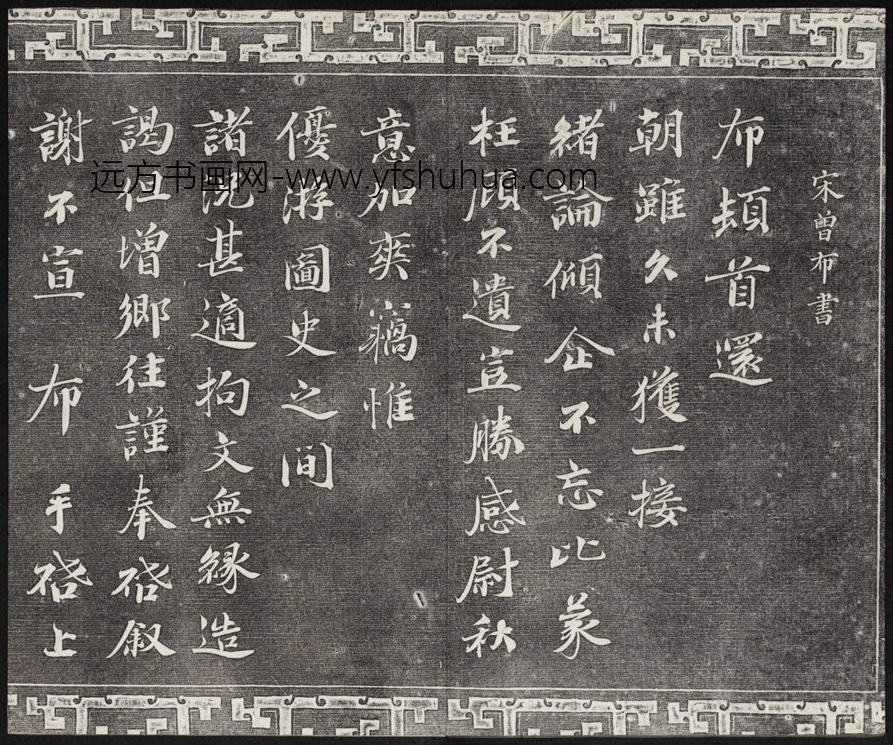 宋曾布書
布頓首還
朝雖久未獲一接
緒論傾企不忘比蒙
枉顧不遺豈勝感尉秋
意加爽竊惟
優游圖史之間
諸況甚適拘文無緣造
謁但增鄉往謹奉啓叙
謝不宣 布 手啓上
远方书画网-www.yfshuhua.com